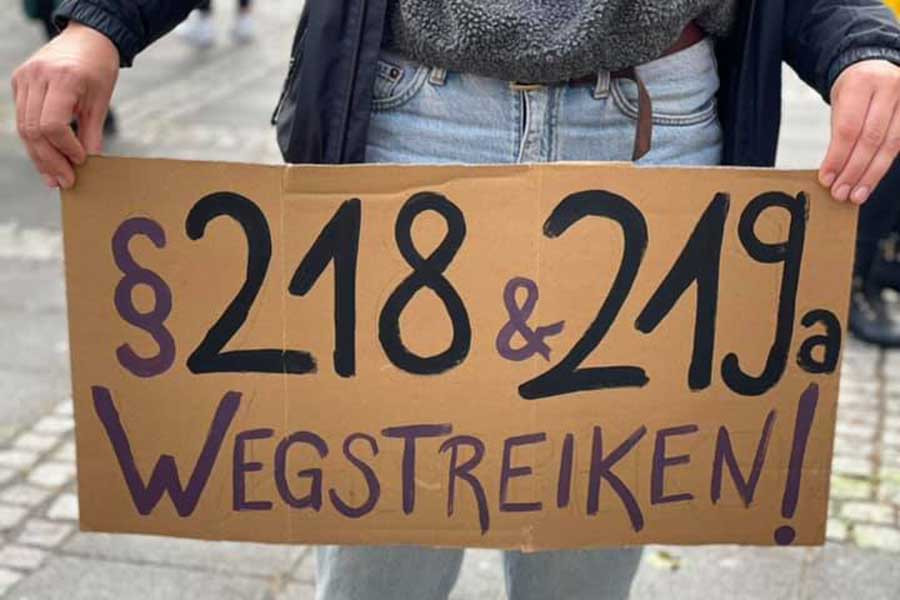 §218 & 219a
WEGSTREIKEN!